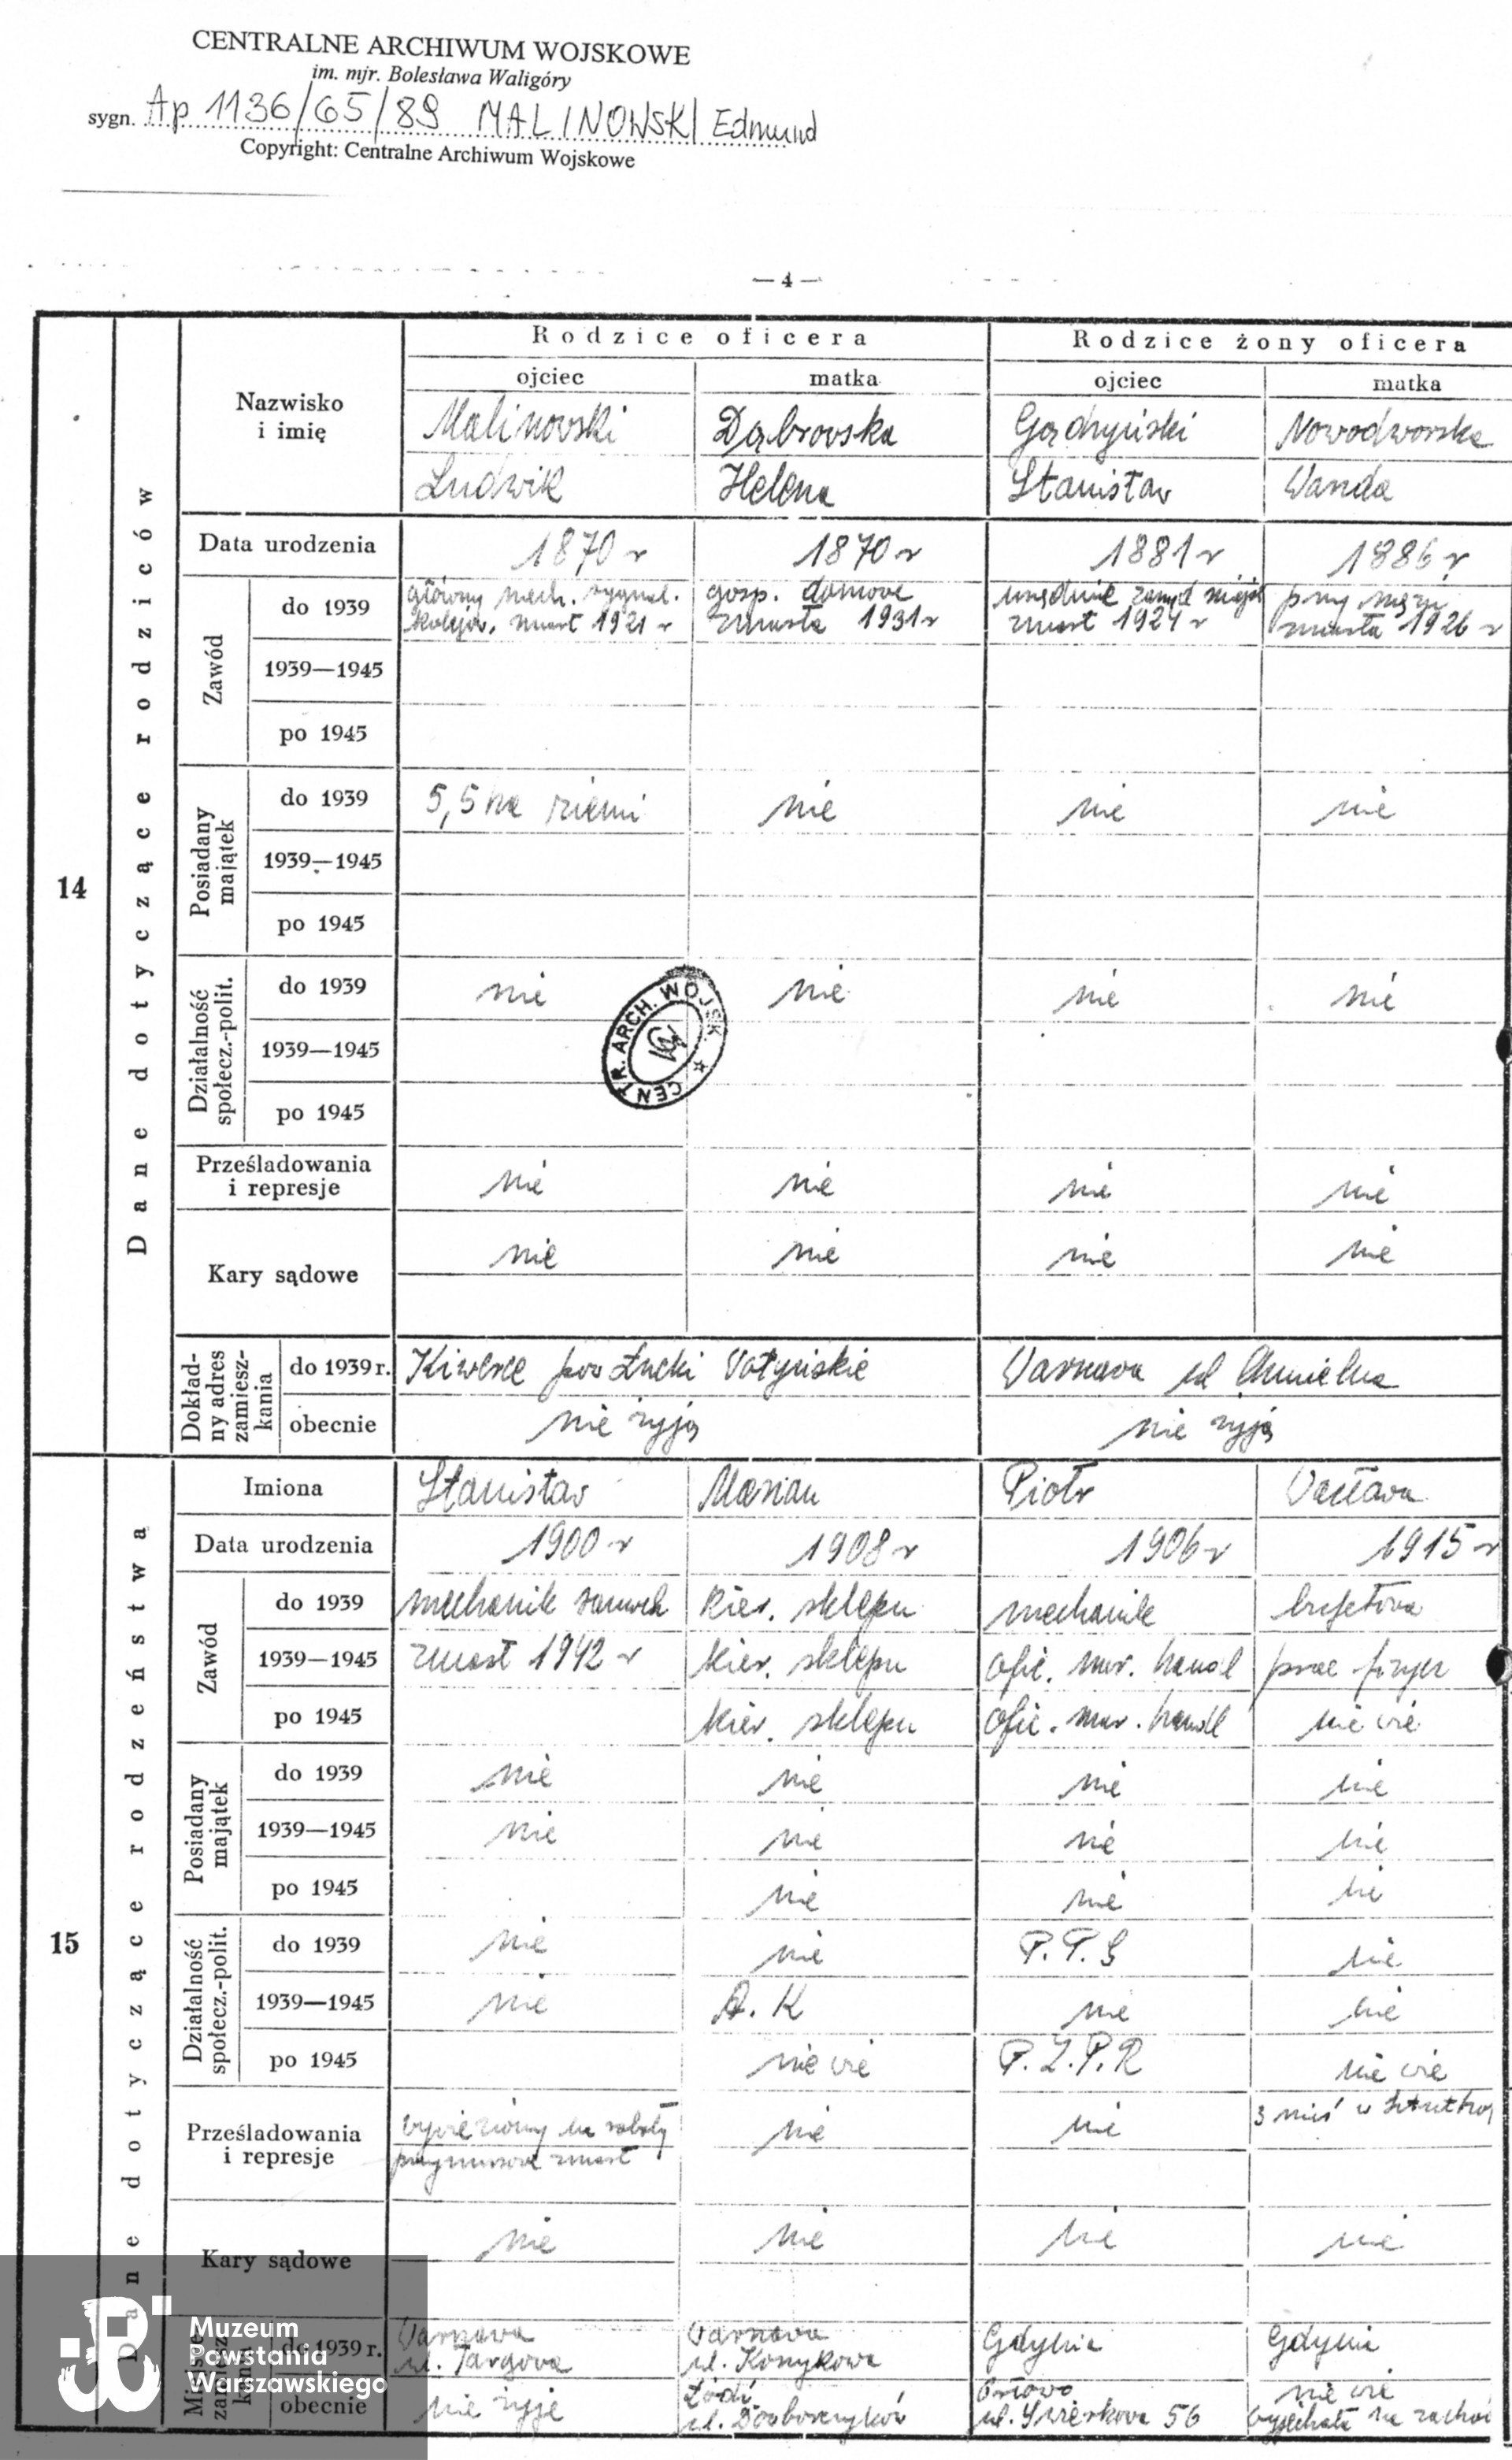 CENTRALNE ARCHIWUM WOJSKOWE
im. mjr. Bolesława Waligóry
sygn. Ap 1136/65/89 MALINOWSKI Edmund
Copyright: Centralne Archiwum Wojskowe
— 4 —
14
Dane dotyczące rodziców
Nazwisko i imię
Rodzice oficera
Rodzice żony oficera
ojciec
matka
ojciec
matka
Malinowski
Dąbrowska
Nowodworska
Ludwik
Helena
Stanisław
Wanda
Data urodzenia
1870 r
1870 r
1881 r
1886 r
Zawód
do 1939
główny mech. sygnal.
gosp. domowe
przy mężu
kolejow. zmarł 1921 r
zmarła 1931 r
zmarł 1924 r
zmarła 1926 r
1939—1945
po 1945
Posiadany majątek
do 1939
5,5 ha ziemi
nie
nie
nie
1939—1945
po 1945
Działalność społecz.-polit.
do 1939
nie
nie
nie
nie
1939—1945
po 1945
CENTR. ARCH. WOJSK.
Prześladowania i represje
nie
nie
nie
nie
Kary sądowe
nie
nie
nie
nie
Dokład-
ny adres
zamiesz-
kania
do 1939 r.
Kiwerce pow Łucki Wołyńskie
Warszawa ul Chmielna
obecnie
nie żyją
nie żyją
15
Dane dotyczące rodzeństwa
Imiona
Stanisław
Marian
Piotr
Wacława
Data urodzenia
1900 r
1908 r
1906 r
1915 r
Zawód
do 1939
mechanik samoch
kier. sklepu
mechanik
bufetowa
1939—1945
zmarł 1942 r
kier. sklepu
ofic. mar. handl
prac fizycz
po 1945
kier. sklepu
ofic. mar. handl
nie wie
Posiadany majątek
do 1939
nie
nie
nie
nie
1939—1945
nie
nie
nie
nie
po 1945
nie
nie
nie
Działalność społecz.-polit.
do 1939
nie
nie
P.P.S
nie
1939—1945
nie
A. K
nie
nie
po 1945
nie wie
P.Z.P.R
nie wie
Prześladowania i represje
wywieziony na roboty
nie
nie
3 mieś w
przymusowe zmarł
Kary sądowe
nie
nie
nie
nie
do 1939 r.
Warszawa
Warszawa
Gdynia
Gdynia
ul. Targowa
ul.
obecnie
nie żyje
Łódź
Orłowo
nie wie
ul.
ul. Świerkowa 56
wyjechała na zachód
Muzeum
Powstania
Warszawskiego